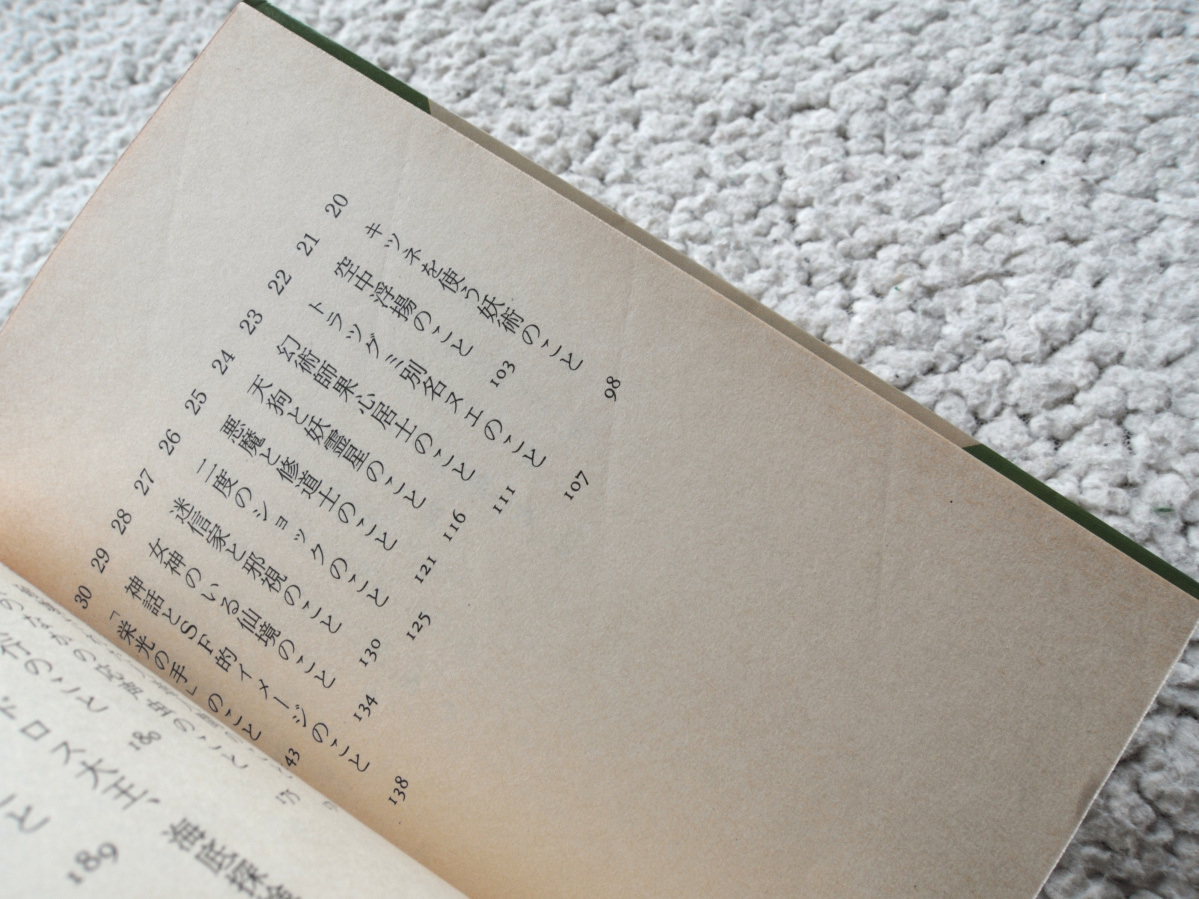 20 キツネを使う妖術のこと 98
21 空中浮揚のこと 103
22 トラツグミ別名ヌエのこと 107
23 幻術師果心居士のこと 111
24 天狗と妖霊星のこと 116
25 悪魔と修道士のこと 121
26 二度のショックのこと 125
27 迷信家と邪視のこと 130
28 女神のいる仙境のこと 134
29 神話とSF的イメージのこと 138
30 「栄光の手」のこと 43
のなかの応声虫のこと
行のこと 180
ドロス大王、海底探検
こと 189